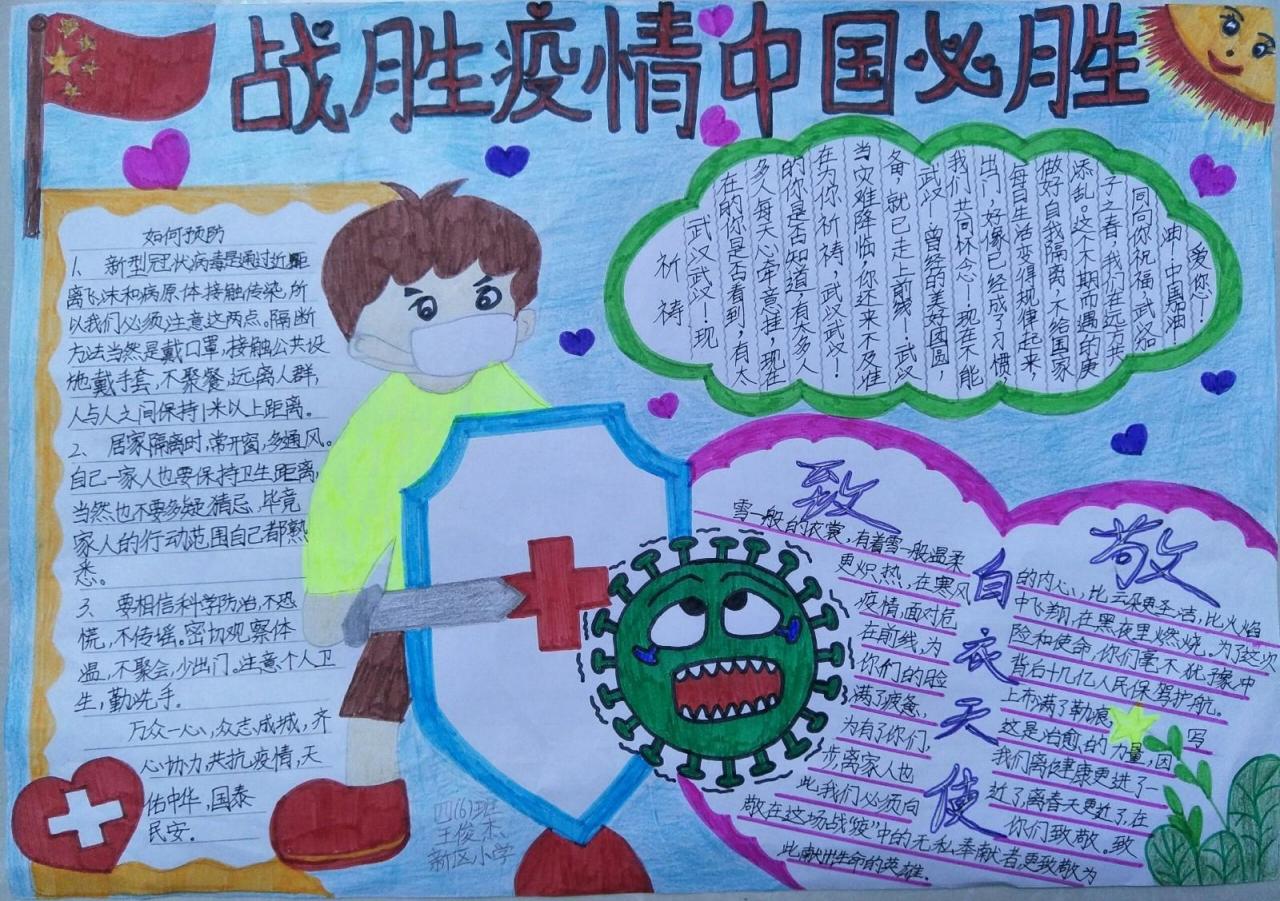 战胜疫情中国必胜
如何预防
1、新型冠状病毒是通过近距
离飞沫和病原体接触传染,所
以我们必须注意这两点。隔断
方法当然是戴口罩,接触公共设
地戴手套,不聚餐,远离人群,
人与人之间保持1米以上距离。
2、居家隔离时,常开窗,多通风。
自己一家人也要保持卫生距离,
当然也不要多疑猜忌,毕竟
家人的行动范围自己都熟
悉。
3、要相信科学防治,不恐
慌,不传谣。密切观察体
温,不聚会,少出门。注意个人卫
生,勤洗手。
万众一心,众志成城,齐
心协力,共抗疫情,天
佑中华,国泰
民安。
爱您!
油!中国加油!
同向你祝福,武汉加
子之春,我们在远方共
添乱,这个不期而遇的庚
做好自我隔离,不给国家
每日生活变得规律起来
出门,好像已经成了习惯
我们共同怀念!现在不能
武汉!曾经的美好团圆,
备,就已走上前线!武汉
当灾难降临,你还来不及准
在为你祈祷,武汉武汉!
的你是否知道,有太多人
多人每天心牵意挂,现在
在的你是否看到,有太
武汉武汉!现
祈祷
致敬
白衣天使
雪一般的衣裳,有着雪一般温柔
的内心,比云朵更圣洁,比火焰
更炽热,在寒风
中飞翔,在黑夜里燃烧。为了这次
疫情,面对危
险和使命,你们毫不犹豫,冲
在前线,为
背后十几亿人民保驾护航。
你们的脸
上布满了勒痕
写
满了疲惫,
这是治愈的力量,因
为有了你们,
我们离健康更进了一
步,离家人也
近了,离春天更近了,在
此,我们必须向
你们致敬。致
敬在这场战“疫”中的无私奉献者,更致敬为
此献出生命的英雄.
四(6)班
王俊杰
新区小学